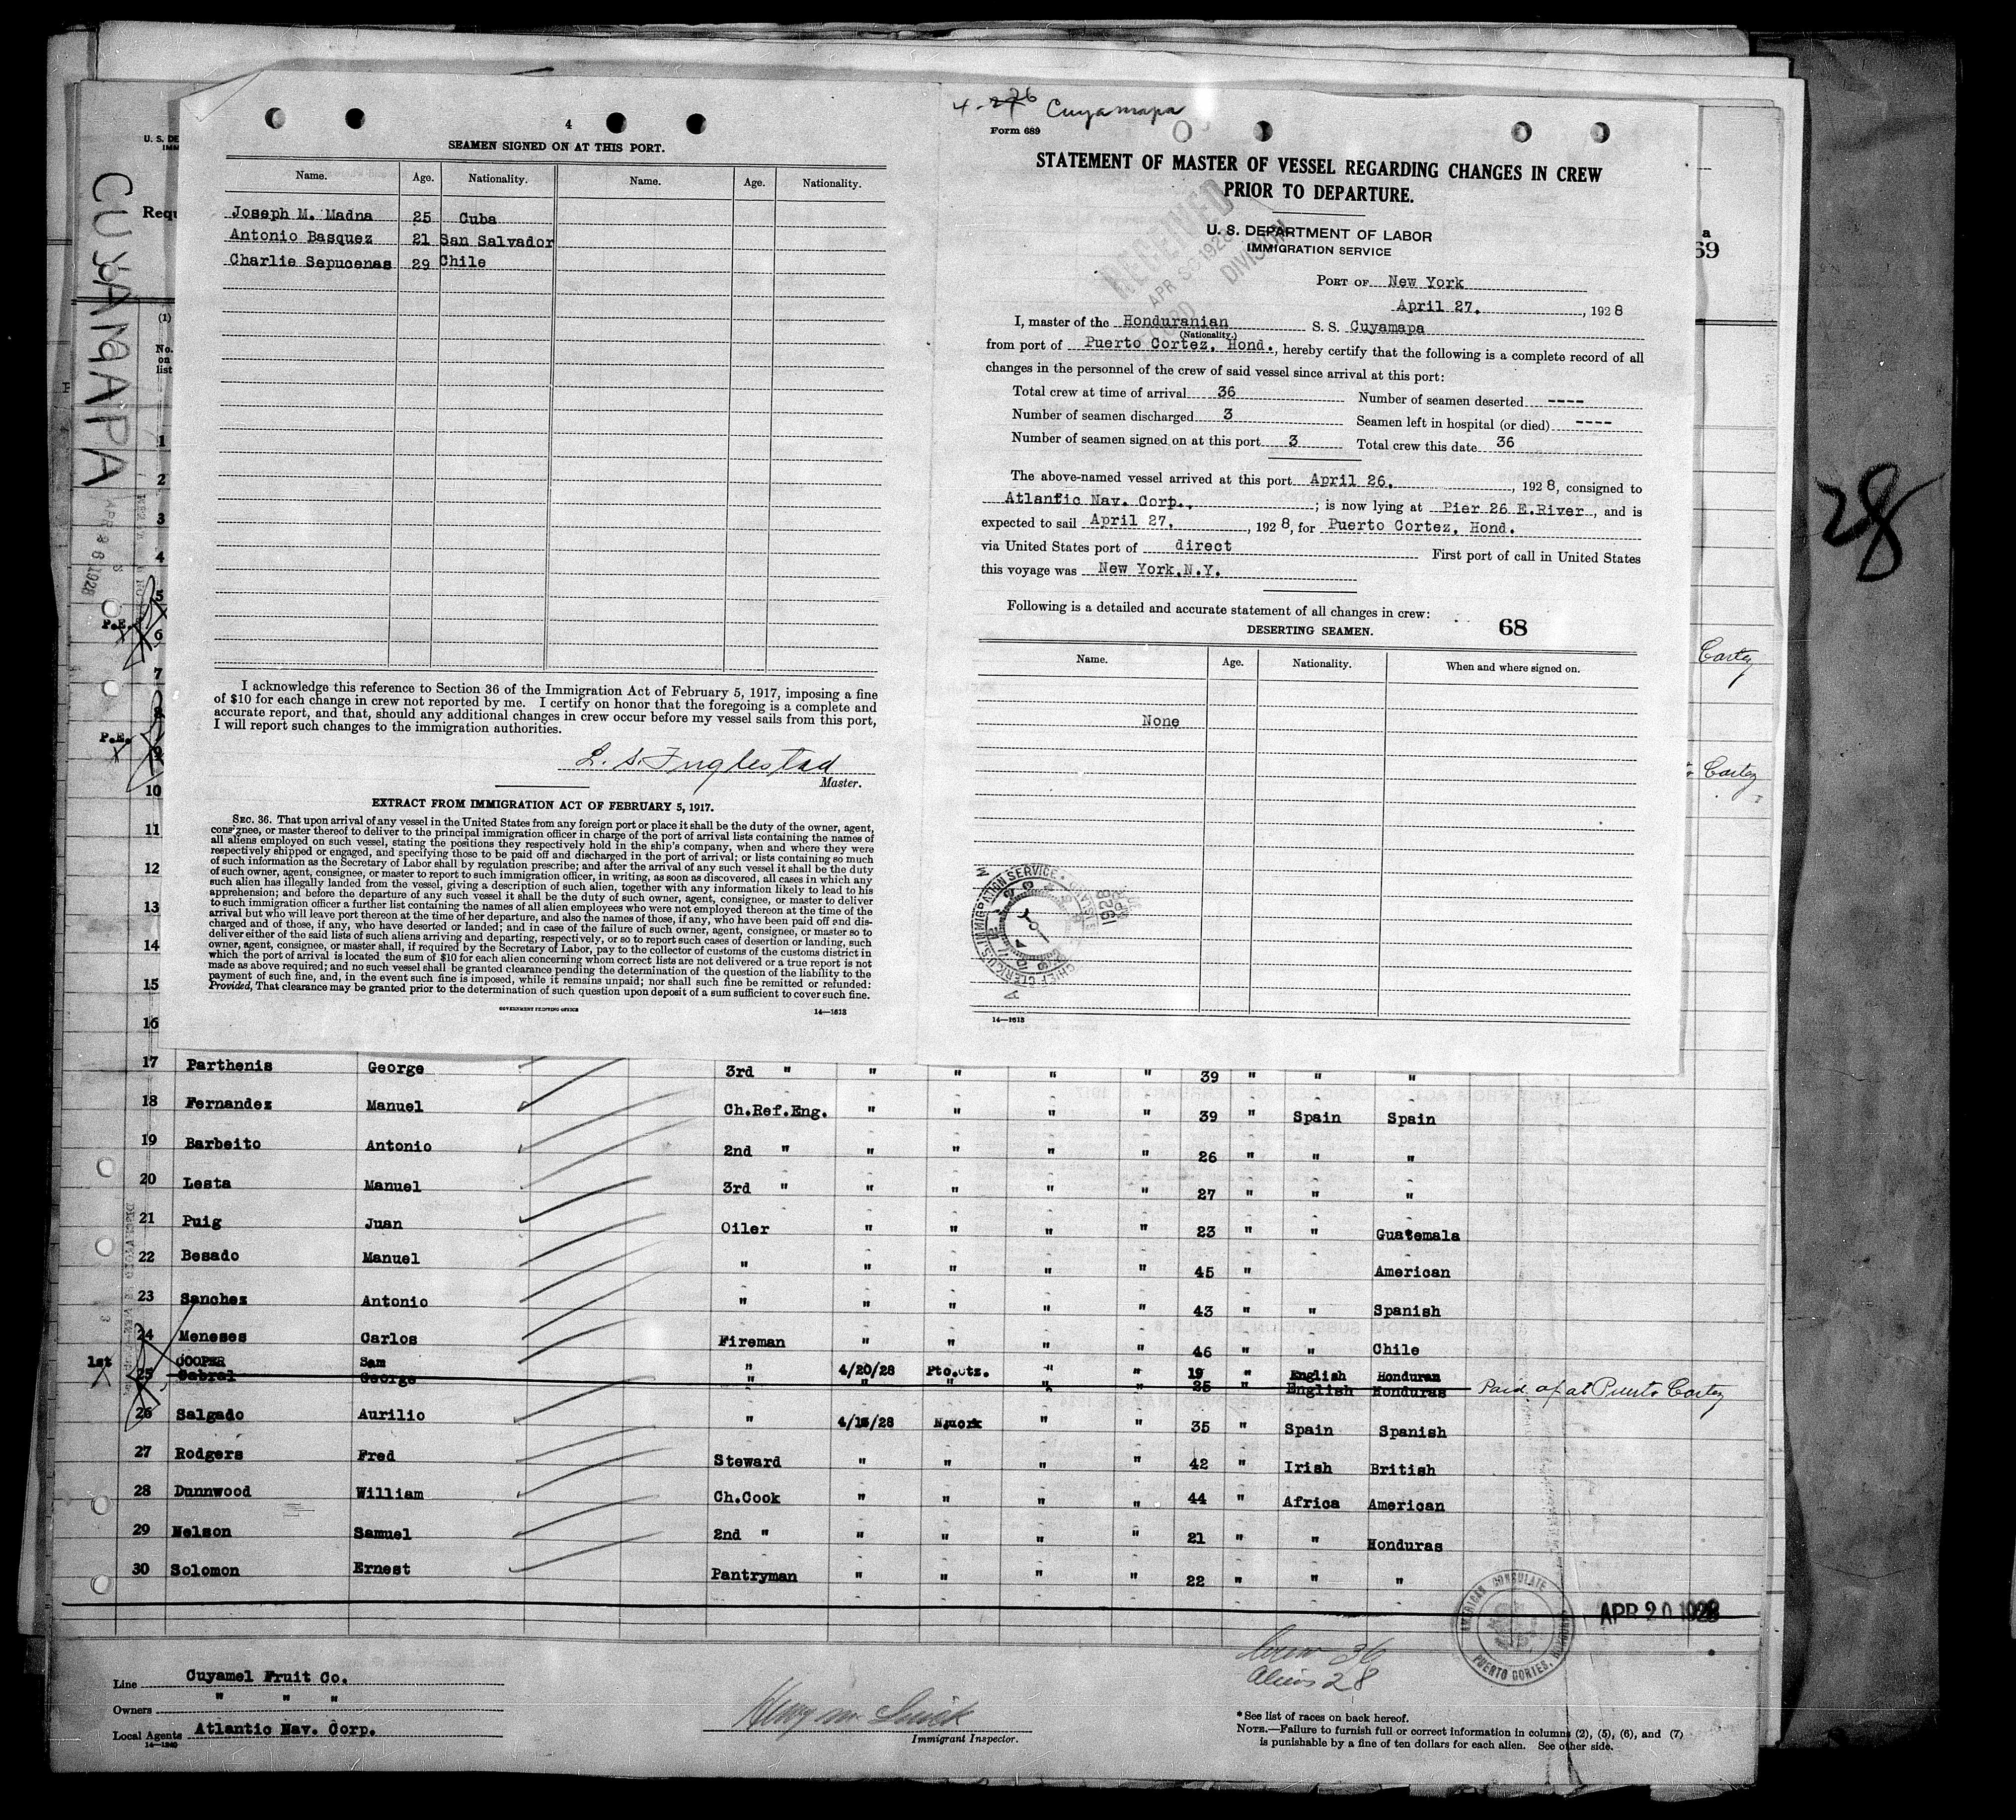 4
SEAMEN SIGNED ON AT THIS PORT.
Name. Age. Nationality. Name. Age. Nationality.
Joseph M. Madna 25 Cuba
Antonio Basquez 21 San Salvador
Charlie Sepucenas 29 Chile
I acknowledge this reference to Section 36 of the Immigration Act of February 5, 1917, imposing a fine
of $10 for each change in crew not reported by me. I certify on honor that the foregoing is a complete and
accurate report, and that, should any additional changes in crew occur before my vessel sails from this port,
I will report such changes to the immigration authorities.
L. S. Inglestad
Master.
EXTRACT FROM IMMIGRATION ACT OF FEBRUARY 5, 1917.
SEC. 36. That upon arrival of any vessel in the United States from any foreign port or place it shall be the duty of the owner, agent,
consignee, or master thereof to deliver to the principal immigration officer in charge of the port of arrival lists containing the names of
all aliens employed on such vessel, stating the positions they respectively hold in the ship's company, when and where they were
respectively shipped or engaged, and specifying those to be paid off and discharged in the port of arrival; or lists containing so much
of such information as the Secretary of Labor shall by regulation prescribe; and after the arrival of any such vessel it shall be the duty
of such owner, agent, consignee, or master to report to such immigration officer, in writing, as soon as discovered, all cases in which any
such alien has illegally landed from the vessel, giving a description of such alien, together with any information likely to lead to his
apprehension; and before the departure of any such vessel it shall be the duty of such owner, agent, consignee, or master to deliver
to such immigration officer a further list containing the names of all alien employees who were not employed thereon at the time of the
arrival but who will leave port thereon at the time of her departure, and also the names of those, if any, who have been paid off and dis-
charged and of those, if any, who have deserted or landed; and in case of the failure of such owner, agent, consignee, or master so to
deliver either of the said lists of such aliens arriving and departing, respectively, or so to report such cases of desertion or landing, such
owner, agent, consignee, or master shall, if required by the Secretary of Labor, pay to the collector of customs of the customs district in
which the port of arrival is located the sum of $10 for each alien concerning whom correct lists are not delivered or a true report is not
made as above required; and no such vessel shall be granted clearance pending the determination of the question of the liability to the
payment of such fine, and, in the event such fine is imposed, while it remains unpaid; nor shall such fine be remitted or refunded:
Provided, That clearance may be granted prior to the determination of such question upon deposit of a sum sufficient to cover such fine.
GOVERNMENT PRINTING OFFICE 14—1613
Cuyamapa
Form 689
STATEMENT OF MASTER OF VESSEL REGARDING CHANGES IN CREW
PRIOR TO DEPARTURE.
U. S. DEPARTMENT OF LABOR
IMMIGRATION SERVICE
RECEIVED
APR 1928
DIVISION
PORT OF New York
April 27, , 1928
I, master of the Honduranian S. S. Cuyamapa
(Nationality.)
from port of Puerto Cortez, Hond., hereby certify that the following is a complete record of all
changes in the personnel of the crew of said vessel since arrival at this port:
Total crew at time of arrival 36 Number of seamen deserted ----
Number of seamen discharged 3 Seamen left in hospital (or died) ----
Number of seamen signed on at this port 3 Total crew this date 36
The above-named vessel arrived at this port April 26, , 1928, consigned to
Atlantic Nav. Corp., ; is now lying at Pier 26 E.River, and is
expected to sail April 27, , 1928, for Puerto Cortez, Hond.
via United States port of direct First port of call in United States
this voyage was New York,N.Y.
Following is a detailed and accurate statement of all changes in crew:
DESERTING SEAMEN. 68
Name. Age. Nationality. When and where signed on.
None
IMMIGRATION SERVICE
1928
14—1613
CUYAMAPA
APR 26 1928
U. S. DE
Requ
(1)
No. on list
1
2
3
4
5
P.E. 6
7
8
P.E. 9
10
11
12
13
14
15
16
69
Cortez
Cortez
28
17 Parthenis George 3rd " " " " " 39 " " "
18 Fernandez Manuel Ch.Ref.Eng. " " " " 39 " Spain Spain
19 Barbeito Antonio 2nd " " " " " 26 " " "
20 Lesta Manuel 3rd " " " " " 27 " " "
21 Puig Juan Oiler " " " " 23 " " Guatemala
22 Besado Manuel " " " " " 45 " American
23 Sanchez Antonio " " " " " 43 " " Spanish
24 Meneses Carlos Fireman " " " " 46 " " Chile
1st COOPER Sam " 4/20/28 Pto.Ctz. " " 19 " English Honduran
25 Cabral George " " " " " 25 English Honduras Paid of at Puerto Cortez
26 Salgado Aurilio " 4/13/28 N.York " " 35 " Spain Spanish
27 Rodgers Fred Steward " " " " 42 " Irish British
28 Dunnwood William Ch.Cook " " " " 44 " Africa American
29 Nelson Samuel 2nd " " " " " 21 " " Honduras
30 Solomon Ernest Pantryman " " " " 22 " " "
AMERICAN CONSULATE
PUERTO CORTES, HONDURAS
APR 20 1928
Crew 36
Aliens 28
Line Cuyamel Fruit Co.
Owners " " "
Local Agents Atlantic Nav. Corp.
14—1240
Immigrant Inspector.
* See list of races on back hereof.
NOTE.—Failure to furnish full or correct information in columns (2), (5), (6), and (7)
is punishable by a fine of ten dollars for each alien. See other side.